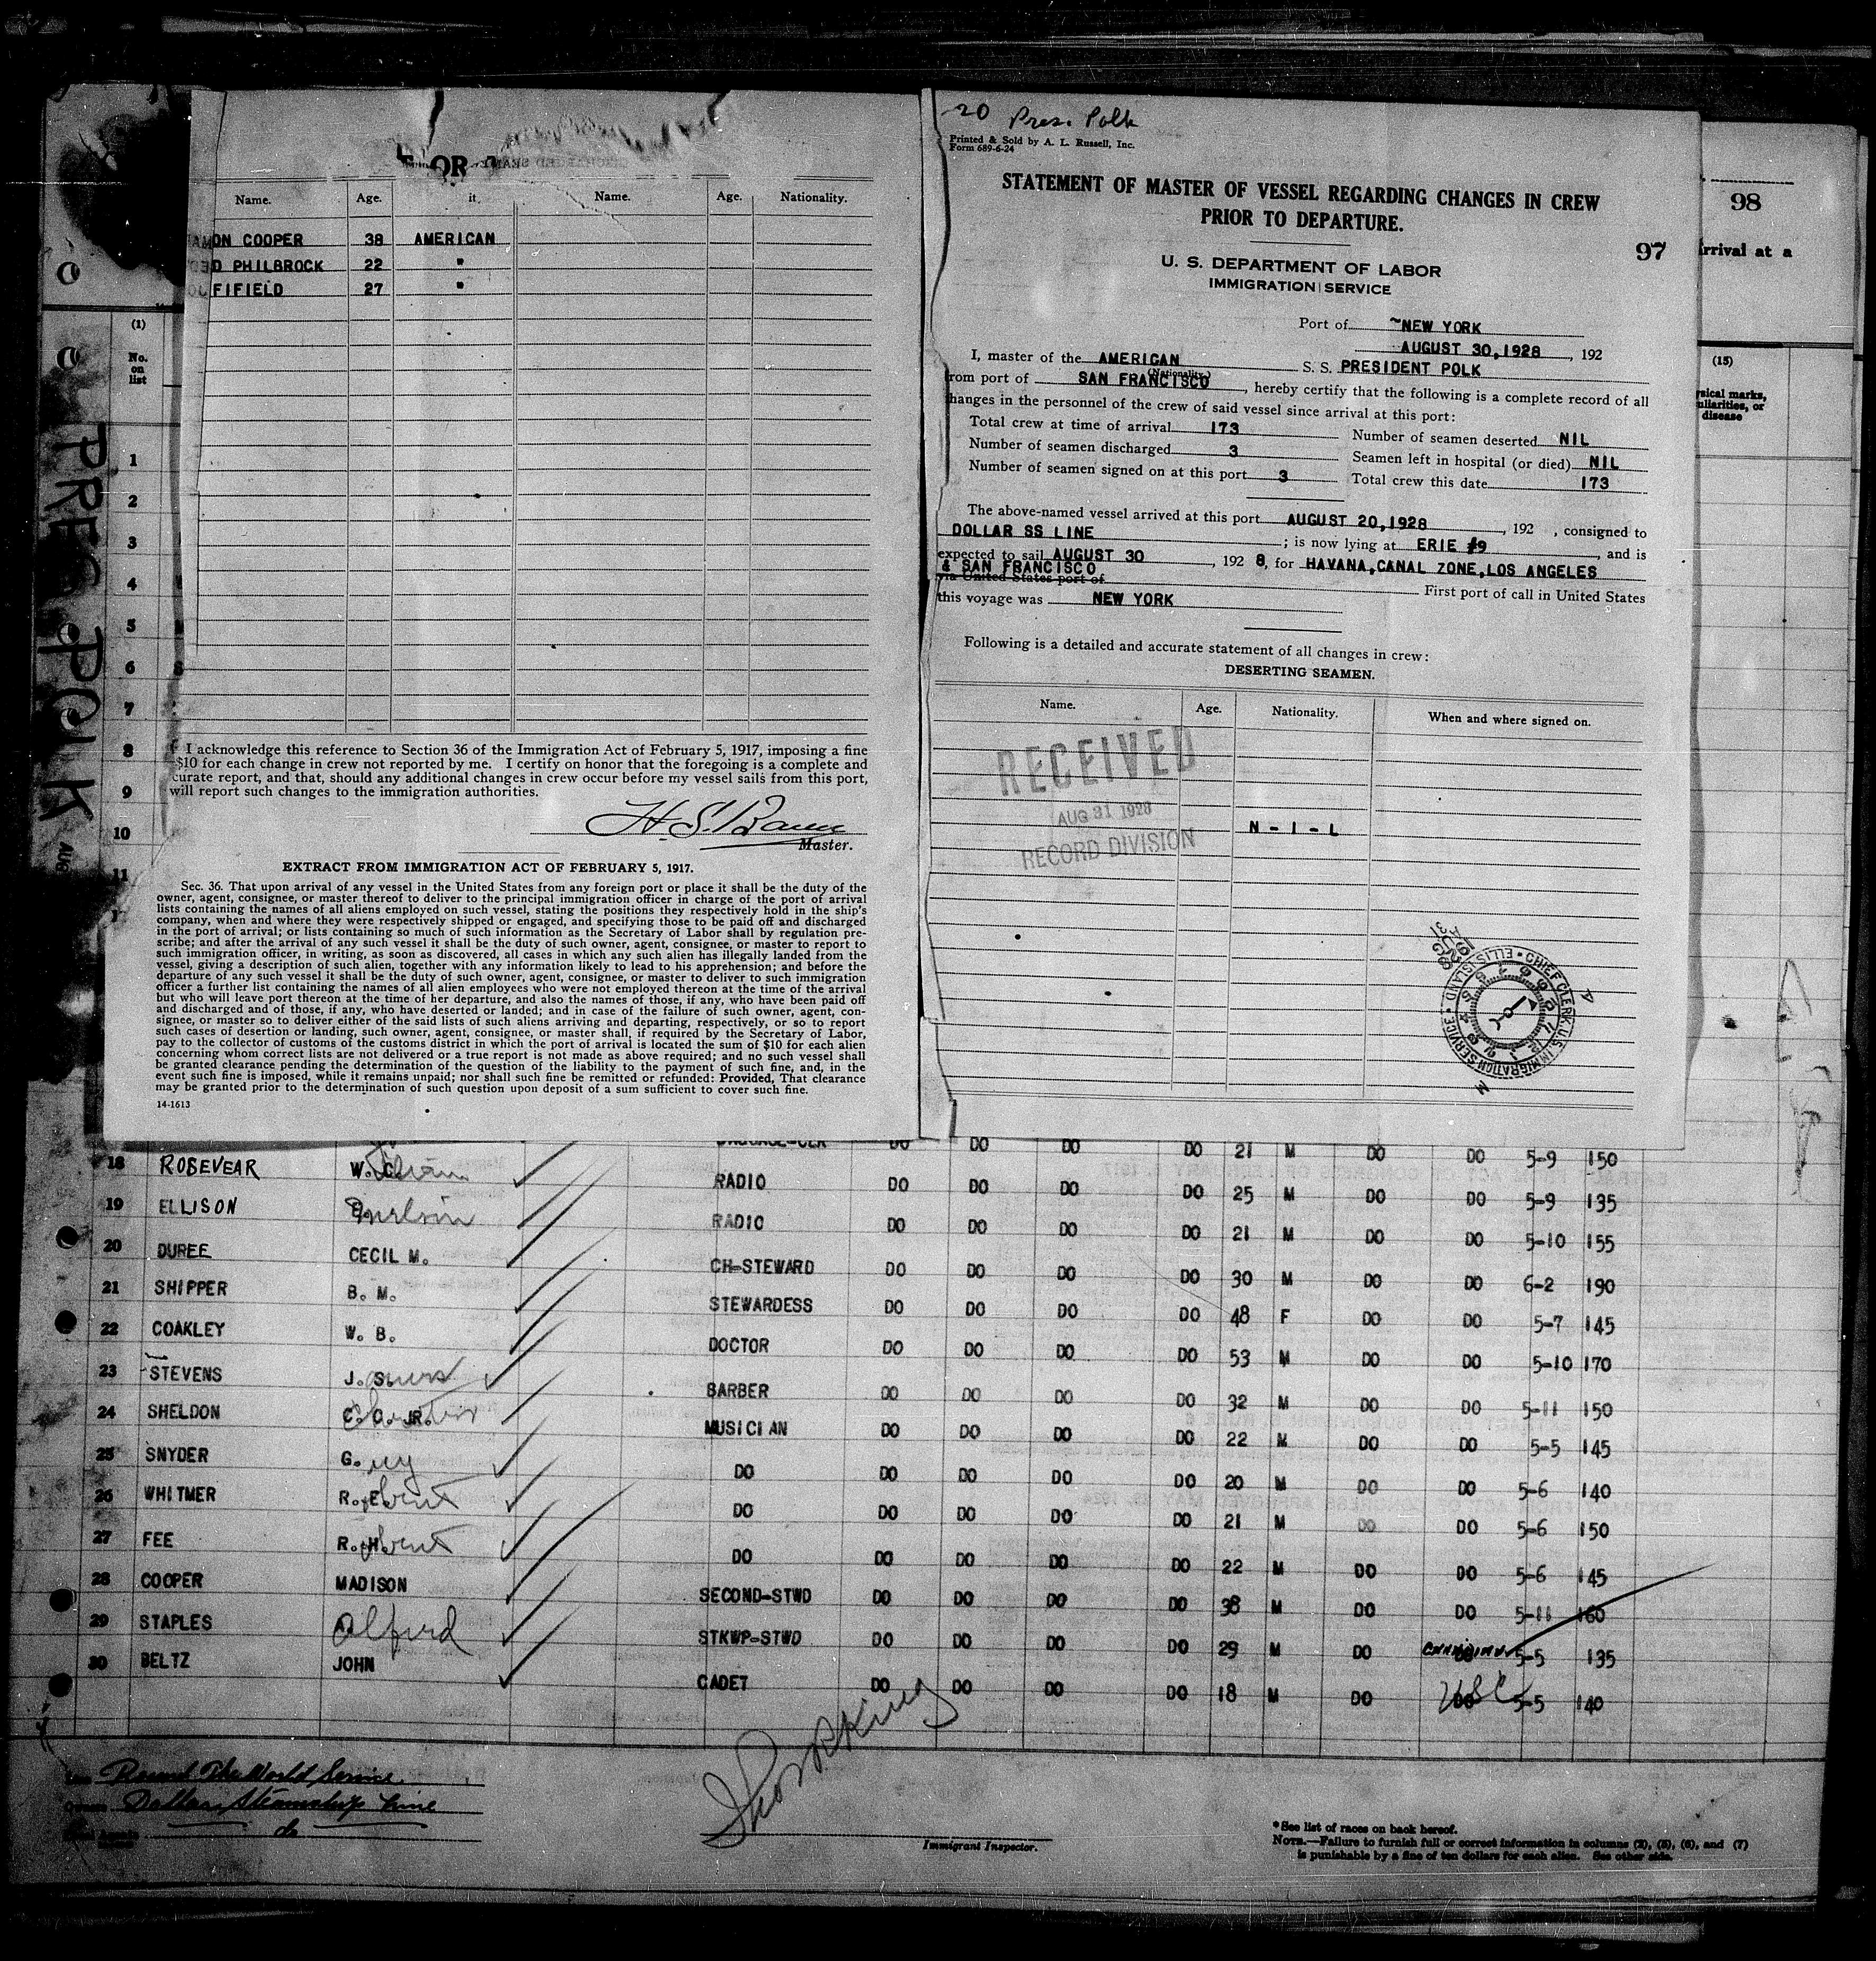 20 Pres. Polk
Printed & Sold by A. L. Russell, Inc.
Form 689-6-24
STATEMENT OF MASTER OF VESSEL REGARDING CHANGES IN CREW
PRIOR TO DEPARTURE.
97
98
U. S. DEPARTMENT OF LABOR
IMMIGRATION SERVICE
Port of NEW YORK
AUGUST 30,1928, 192
I, master of the AMERICAN S. S. PRESIDENT POLK
(Nationality.)
rom port of SAN FRANCISCO, hereby certify that the following is a complete record of all
hanges in the personnel of the crew of said vessel since arrival at this port:
Total crew at time of arrival 173 Number of seamen deserted NIL
Number of seamen discharged 3 Seamen left in hospital (or died) NIL
Number of seamen signed on at this port 3 Total crew this date 173
The above-named vessel arrived at this port AUGUST 20,1928, 192 , consigned to
DOLLAR SS LINE; is now lying at ERIE #9, and is
expected to sail AUGUST 30, 192 8, for HAVANA,CANAL ZONE,LOS ANGELES
& SAN FRANCISCO
via United States port of First port of call in United States
this voyage was NEW YORK
Following is a detailed and accurate statement of all changes in crew:
DESERTING SEAMEN.
Name. Age. Nationality. When and where signed on.
N - I - L
RECEIVED
AUG 31 1928
RECORD DIVISION
CHIEF CLERK, U.S. IMMIGRATION SERVICE • ELLIS ISLAND •
OR
Name. Age. it Name. Age. Nationality.
AMON COOPER 38 AMERICAN
D PHILBROCK 22 "
FIFIELD 27 "
I acknowledge this reference to Section 36 of the Immigration Act of February 5, 1917, imposing a fine
$10 for each change in crew not reported by me. I certify on honor that the foregoing is a complete and
curate report, and that, should any additional changes in crew occur before my vessel sails from this port,
will report such changes to the immigration authorities.
Master.
EXTRACT FROM IMMIGRATION ACT OF FEBRUARY 5, 1917.
Sec. 36. That upon arrival of any vessel in the United States from any foreign port or place it shall be the duty of the
owner, agent, consignee, or master thereof to deliver to the principal immigration officer in charge of the port of arrival
lists containing the names of all aliens employed on such vessel, stating the positions they respectively hold in the ship's
company, when and where they were respectively shipped or engaged, and specifying those to be paid off and discharged
in the port of arrival; or lists containing so much of such information as the Secretary of Labor shall by regulation pre-
scribe; and after the arrival of any such vessel it shall be the duty of such owner, agent, consignee, or master to report to
such immigration officer, in writing, as soon as discovered, all cases in which any such alien has illegally landed from the
vessel, giving a description of such alien, together with any information likely to lead to his apprehension; and before the
departure of any such vessel it shall be the duty of such owner, agent, consignee, or master to deliver to such immigration
officer a further list containing the names of all alien employees who were not employed thereon at the time of the arrival
but who will leave port thereon at the time of her departure, and also the names of those, if any, who have been paid off
and discharged and of those, if any, who have deserted or landed; and in case of the failure of such owner, agent, con-
signee, or master so to deliver either of the said lists of such aliens arriving and departing, respectively, or so to report
such cases of desertion or landing, such owner, agent, consignee, or master shall, if required by the Secretary of Labor,
pay to the collector of customs of the customs district in which the port of arrival is located the sum of $10 for each alien
concerning whom correct lists are not delivered or a true report is not made as above required; and no such vessel shall
be granted clearance pending the determination of the question of the liability to the payment of such fine, and, in the
event such fine is imposed, while it remains unpaid; nor shall such fine be remitted or refunded: Provided, That clearance
may be granted prior to the determination of such question upon deposit of a sum sufficient to cover such fine.
14-1613
PRES POLK
AUG
rrival at a
(1)
No. on list
(15)
sical marks,
uliarities, or
disease
1
2
3
4
5
6
7
8
9
10
11
DO DO DO DO 21 M DO DO 5-9 150
18 ROSEVEAR W. C. RADIO DO DO DO DO 25 M DO DO 5-9 135
19 ELLISON RADIO DO DO DO DO 21 M DO DO 5-10 155
20 DUREE CECIL M. CH-STEWARD DO DO DO DO 30 M DO DO 6-2 190
21 SHIPPER B. M. STEWARDESS DO DO DO DO 48 F DO DO 5-7 145
22 COAKLEY W. B. DOCTOR DO DO DO DO 53 M DO DO 5-10 170
23 STEVENS J. S. BARBER DO DO DO DO 32 M DO DO 5-11 150
24 SHELDON C. O. JR. MUSICIAN DO DO DO DO 22 M DO DO 5-5 145
25 SNYDER G. DO DO DO DO DO 20 M DO DO 5-6 140
26 WHITMER R. E. DO DO DO DO DO 21 M DO DO 5-6 150
27 FEE R. H. DO DO DO DO DO 22 M DO DO 5-6 145
28 COOPER MADISON SECOND-STWD DO DO DO DO 38 M DO DO 5-11 160
29 STAPLES Alfred STKWP-STWD DO DO DO DO 29 M DO CANADIAN 5-5 135
30 BELTZ JOHN CADET DO DO DO DO 18 M DO USC 5-5 140
Round The World Service
Dollar Steamship Line
do
Immigrant Inspector.
*See list of races on back hereof.
NOTE.—Failure to furnish full or correct information in columns (2), (5), (6), and (7)
is punishable by a fine of ten dollars for each alien. See other side.